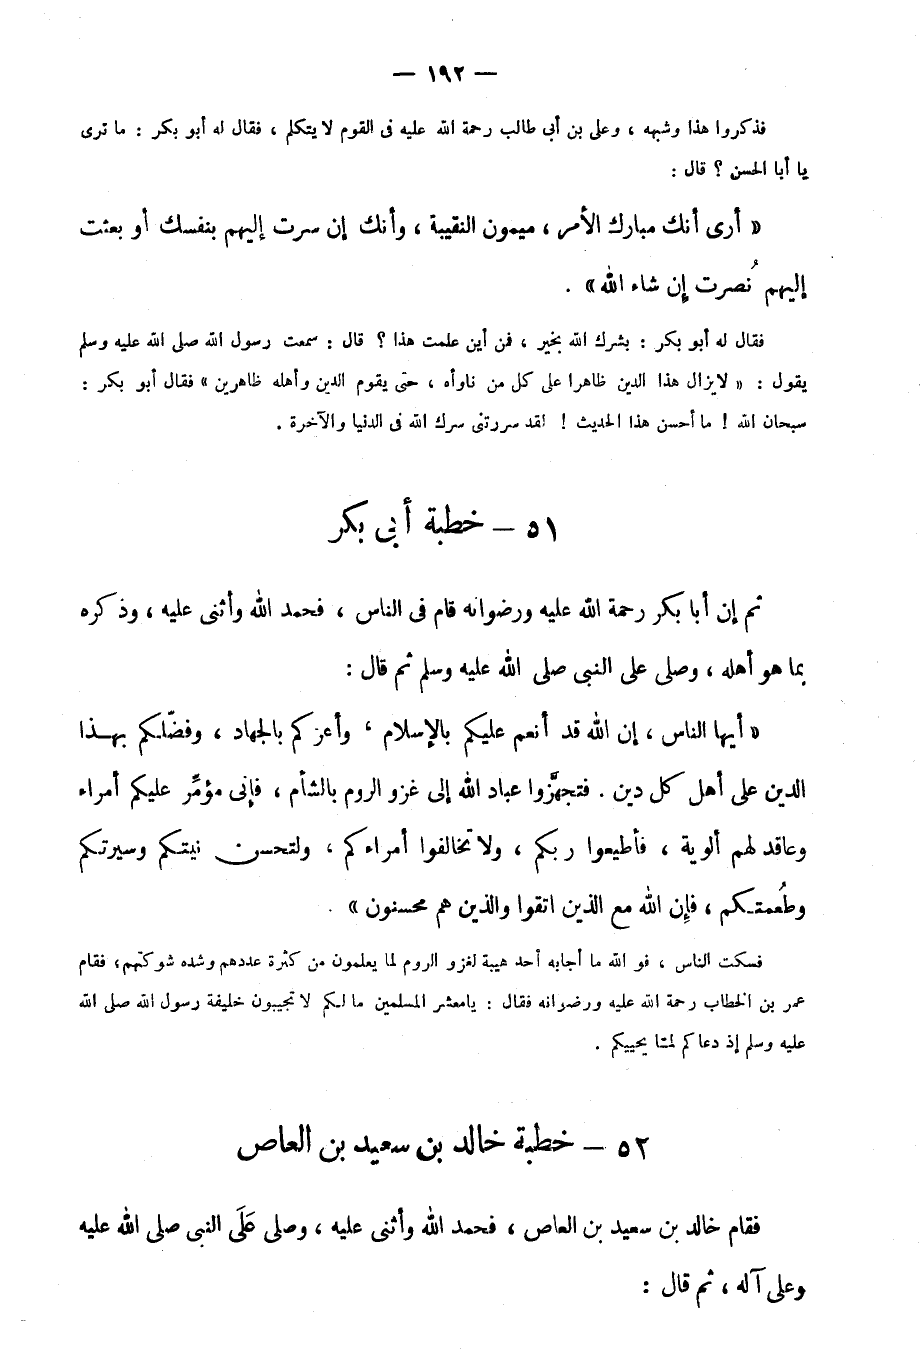 — ١٩٢ —
فذكروا هذا وشبهه ، وعلى بن أبى طالب رحمة الله عليه فى القوم لا يتكلم ، فقال له أبو بكر : ما ترى
يا أبا الحسن ؟ قال :
« أرى أنك مبارك الأمر ، ميمون النقيبة ، وأنك إن سرت إليهم بنفسك أو بعثت
إليهم نُصرت إن شاء الله » .
فقال له أبو بكر : بشرك الله بخير ، فمن أين علمت هذا ؟ قال : سمعت رسول الله صلى الله عليه وسلم
يقول : « لا يزال هذا الدين ظاهرا على كل من ناوأه ، حتى يقوم الدين وأهله ظاهرين » فقال أبو بكر :
سبحان الله ! ما أحسن هذا الحديث ! لقد سررتنى سرك الله فى الدنيا والآخرة .
٥١ — خطبة أبى بكر
ثم إن أبا بكر رحمة الله عليه ورضوانه قام فى الناس ، فحمد الله وأثنى عليه ، وذكره
بما هو أهله ، وصلى على النبى صلى الله عليه وسلم ثم قال :
« أيها الناس ، إن الله قد أنعم عليكم بالإسلام ، وأعزكم بالجهاد ، وفضّلكم بهذا
الدين على أهل كل دين . فتجهّزوا عباد الله إلى غزو الروم بالشأم ، فإنى مؤمِّر عليكم أمراء
وعاقد لهم ألوية ، فأطيعوا ربكم ، ولا تخالفوا أمراءكم ، ولتحسن نيتكم وسيرتكم
وطُعمتكم ، فإن الله مع الذين اتقوا والذين هم محسنون » .
فسكت الناس ، فو الله ما أجابه أحد هيبة لغزو الروم لما يعلمون من كثرة عددهم وشده شوكتهم، فقام
عمر بن الخطاب رحمة الله عليه ورضوانه فقال : يامعشر المسلمين مالكم لا تجيبون خليفة رسول الله صلى الله
عليه وسلم إذ دعاكم لما يحييكم .
٥٢ — خطبة خالد بن سعيد بن العاص
فقام خالد بن سعيد بن العاص ، فحمد الله وأثنى عليه ، وصلى عَلَى النبى صلى الله عليه
وعلى آله ، ثم قال :